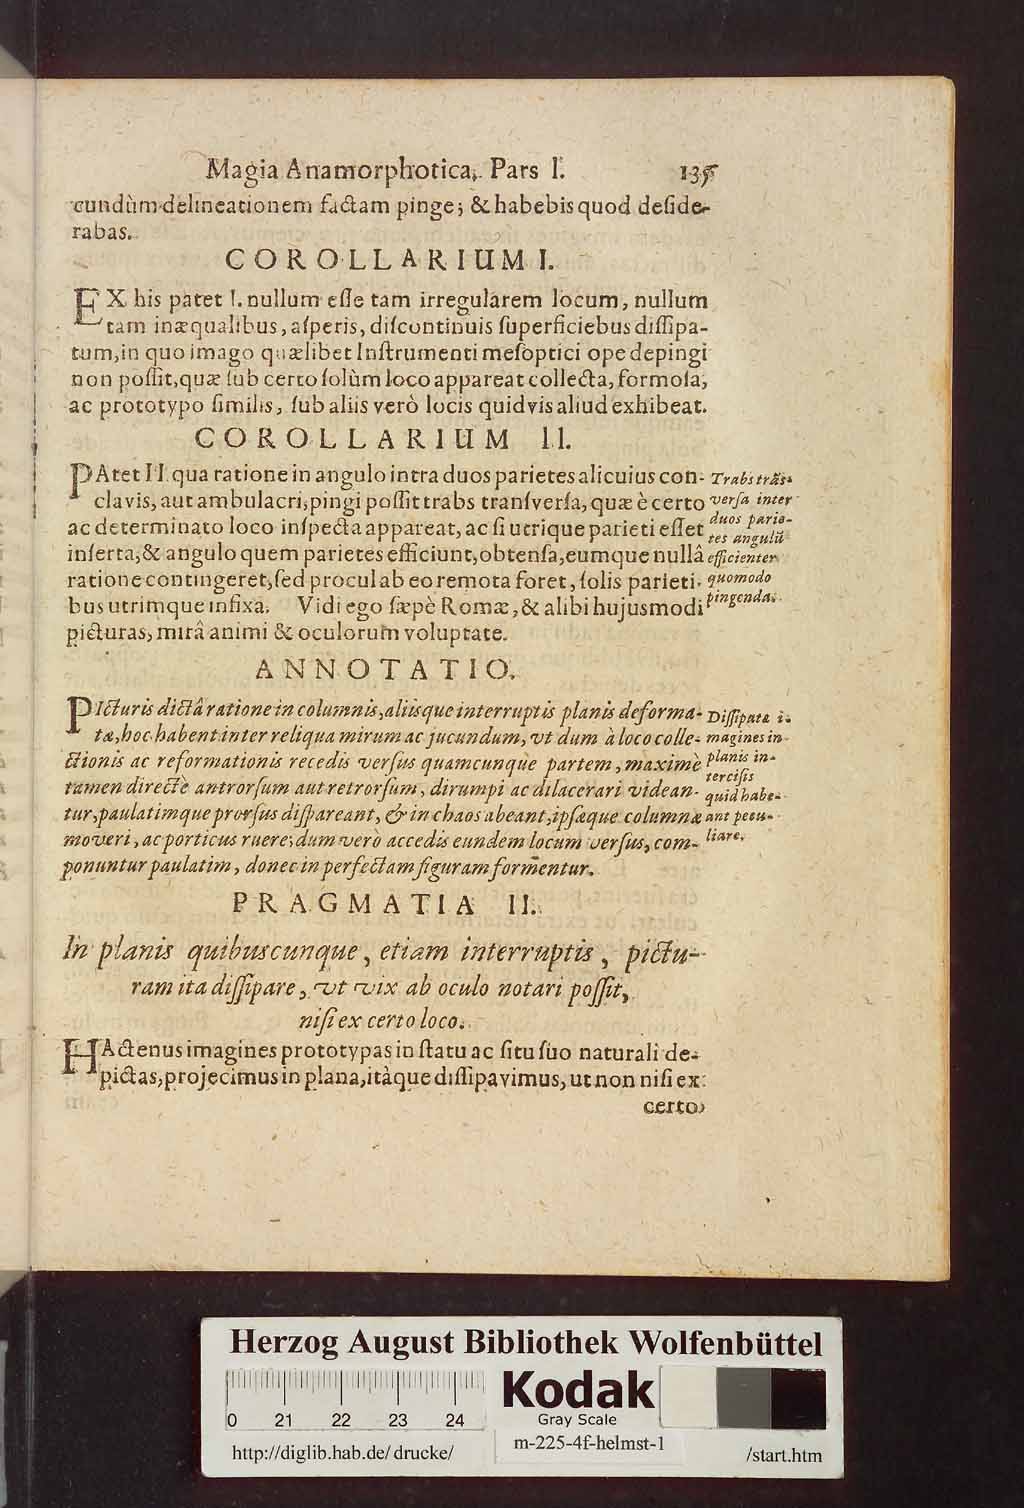 Magia Anamorphotica, Pars I. 135
cundùm delineationem factam pinge; & habebis quod deſide-
rabas.
COROLLARIUM I.
EX his patet I. nullum eſſe tam irregularem locum, nullum
tam inæqualibus, aſperis, diſcontinuis ſuperficiebus diſſipa-
tum, in quo imago quælibet Inſtrumenti meſoptici ope depingi
non poſſit, quæ ſub certo ſolùm loco appareat collecta, formoſa,
ac prototypo ſimilis, ſub aliis verò locis quidvis aliud exhibeat.
COROLLARIUM II.
PAtet II qua ratione in angulo intra duos parietes alicuius con-
clavis, aut ambulacri, pingi poſſit trabs tranſverſa, quæ è certo
ac determinato loco inſpecta appareat, ac ſi utrique parieti eſſet
inſerta, & angulo quem parietes efficiunt, obtenſa, eumque nullâ
ratione contingeret, ſed procul ab eo remota foret, ſolis parieti-
bus utrimque infixa. Vidi ego ſæpè Romæ, & alibi hujusmodi
picturas, mirâ animi & oculorum voluptate.
Trabs trãs-
verſa inter
duos parie-
tes angulũ
efficientes
quomodo
pingenda.
ANNOTATIO.
PIcturis dictâ ratione in columnis, aliisque interruptis planis deforma-
tæ, hoc habent inter reliqua mirum ac jucundum, vt dum à loco colle-
ctionis ac reformationis recedis verſus quamcunque partem, maximè
tamen directè antrorſum aut retrorſum, dirumpi ac dilacerari videan-
tur, paulatimque prorſus diſpareant, & in chaos abeant, ipſæque columnæ
moveri, ac porticus ruere; dum verò accedis eundem locum verſus, com-
ponuntur paulatim, donec in perfectam figuram formentur.
Diſſipatæ i-
magines in
planis in-
terciſis
quid habe-
ant pecu-
liare.
PRAGMATIA II.
In planis quibuscunque, etiam interruptis, pictu-
ram ita diſſipare, vt vix ab oculo notari poſſit,
niſi ex certo loco.
HActenus imagines prototypas in ſtatu ac ſitu ſuo naturali de-
pictas, projecimus in plana, itàque diſſipavimus, ut non niſi ex
certo
Herzog August Bibliothek Wolfenbüttel
0 21 22 23 24
Kodak
Gray Scale
http://diglib.hab.de/drucke/
m-225-4f-helmst-1
/start.htm